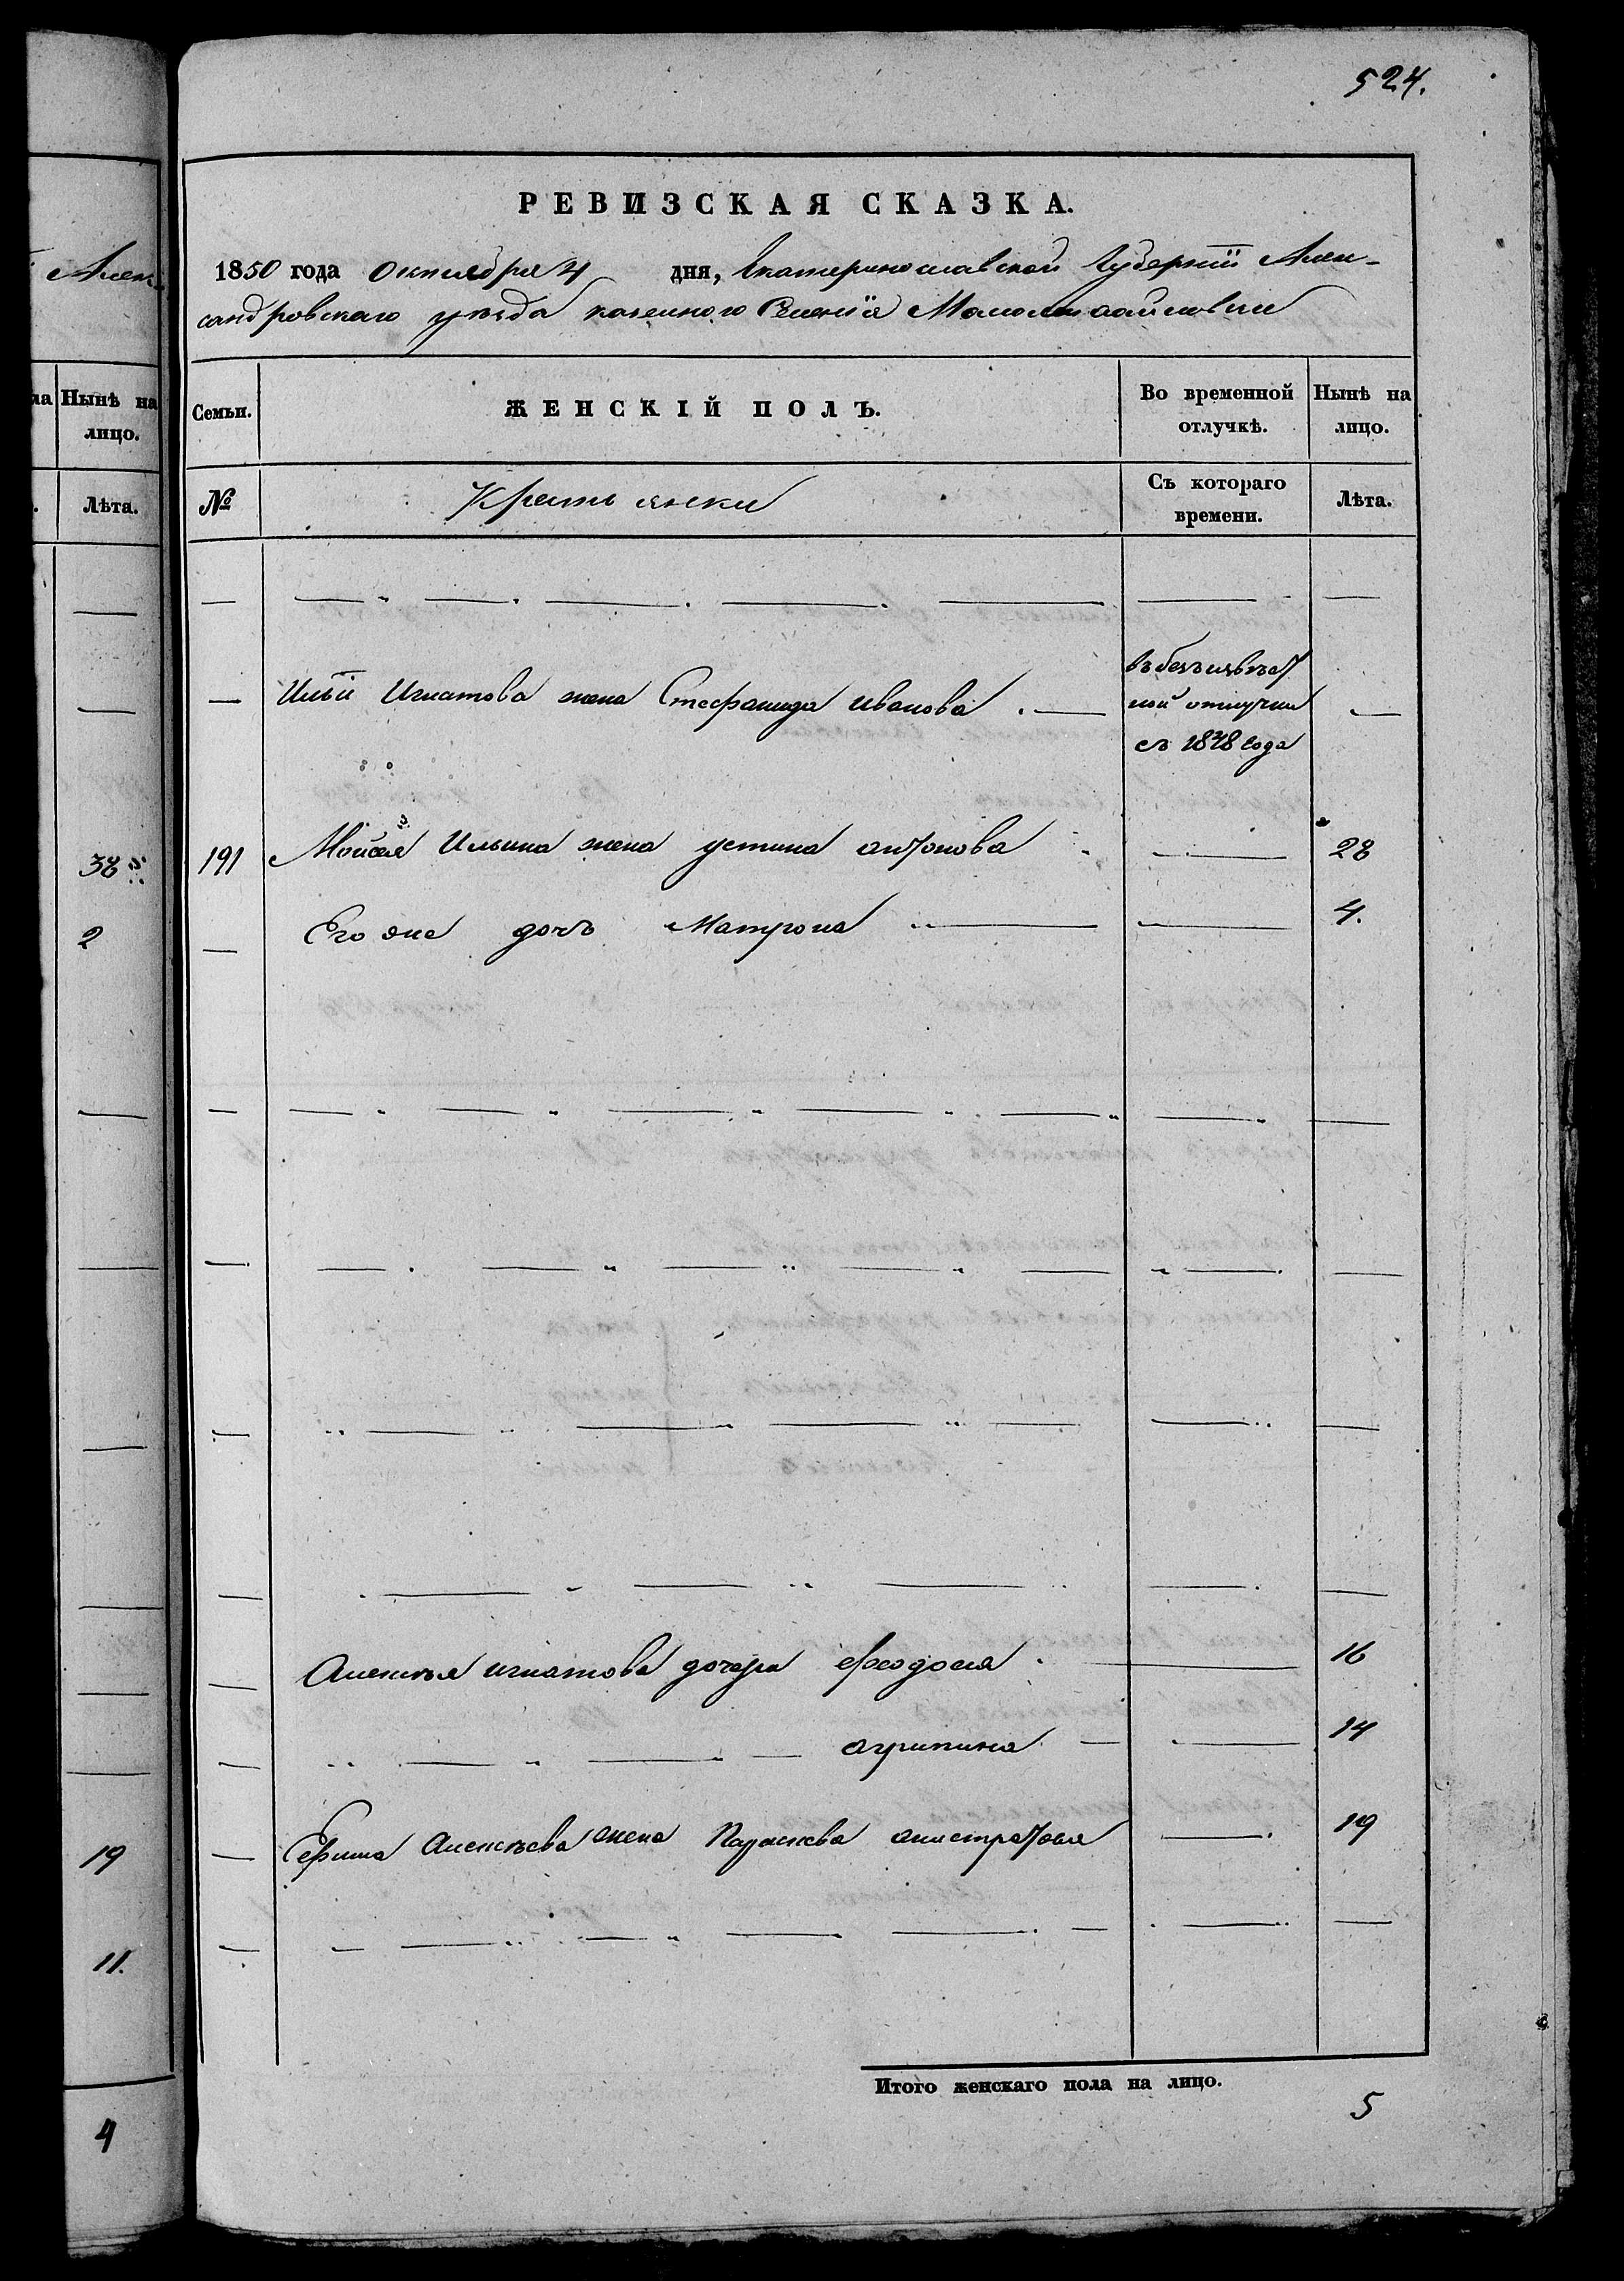 524.
Алек-
РЕВИЗСКАЯ СКАЗКА.
1850 года Октября 4 дня, Екатеринославской Губернiи Алек-
сандровскаго уѣзда казенного Селенiя Мало
Нынѣ на
лицо.
Лѣта.
Семьи.
ЖЕНСКІЙ ПОЛЪ.
Во временной
отлучкѣ.
Нынѣ на
лицо.
№
Крестьянки
Съ котораго
времени.
Лѣта.
Ильи Игнатова жена Стефанида иванова
въ безъизвѣст
ной отлучки
съ 1848 года
38
191 Мойсея Ильина жена устина антонова 28
2
Его же дочъ Матрона 4.
Алексѣя игнатова дочери феодосия 16
агрипина 14
19
Ефима Алексѣева жена Параскева 19
11.
Итого женскаго пола на лицо.
5
4